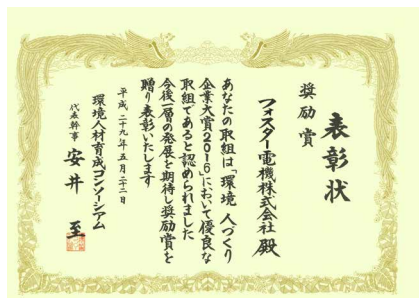 表彰状
奨励賞
フォスター電機株式会社 殿
あなたの取組は「環境 人づくり
企業大賞2016」において優良な
取組であると認められました
今後一層の発展を期待し奨励賞を
贈り表彰いたします
平成二十九年五月二十二日
環境人材育成コンソーシアム
代表幹事 安井 至